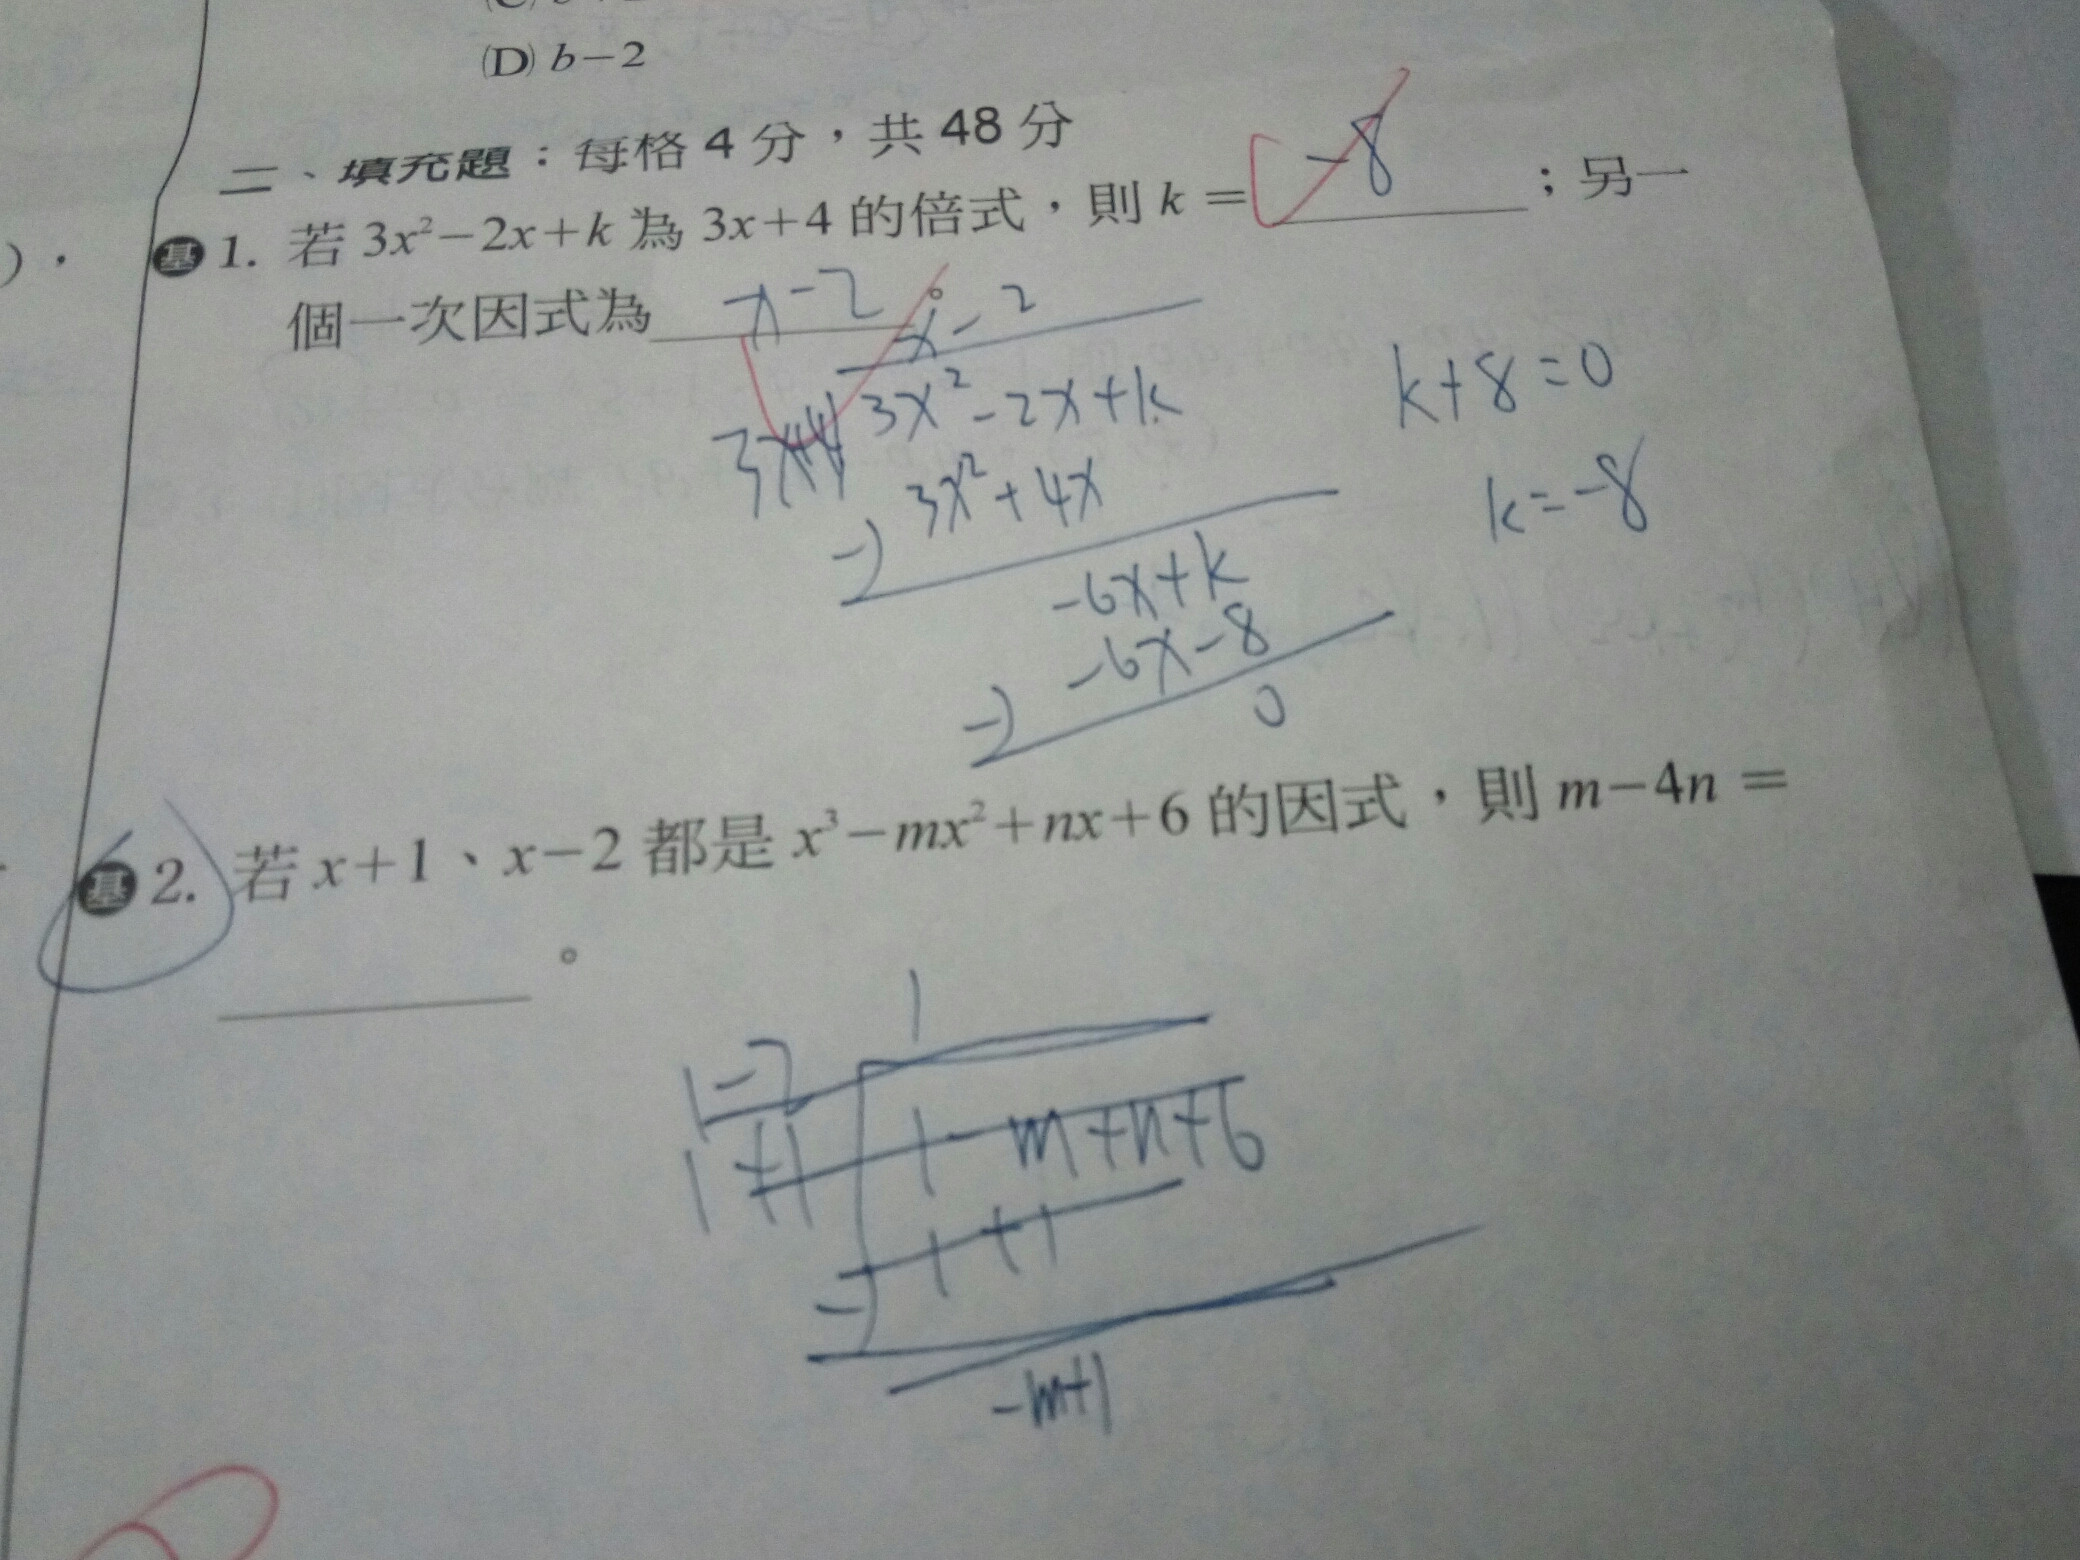 (D) b−2
二、填充題：每格 4 分，共 48 分
基 1. 若 3x²−2x+k 為 3x+4 的倍式，則 k = −8 ；另一
個一次因式為 x−2 。
x − 2
3x+4 3x²−2x+k
k+8=0
3x²+4x
k=−8
−)
−6x+k
−6x−8
−) 0
基 2. 若 x+1、x−2 都是 x³−mx²+nx+6 的因式，則 m−4n =
。
1
1−2
1+1 1−m+n+6
1+1
−)
−m+1